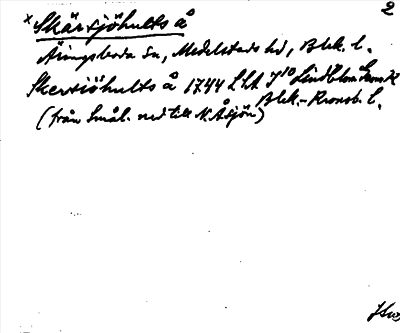 2
x Skärsjöhults å
Åringsboda sn, Medelstads hd, Blek. l.
Skersiöhults å 1744 LhA J10 Lindblom
Blek.-Kronob. l.
(från Smål. ned till N. Åsjön)